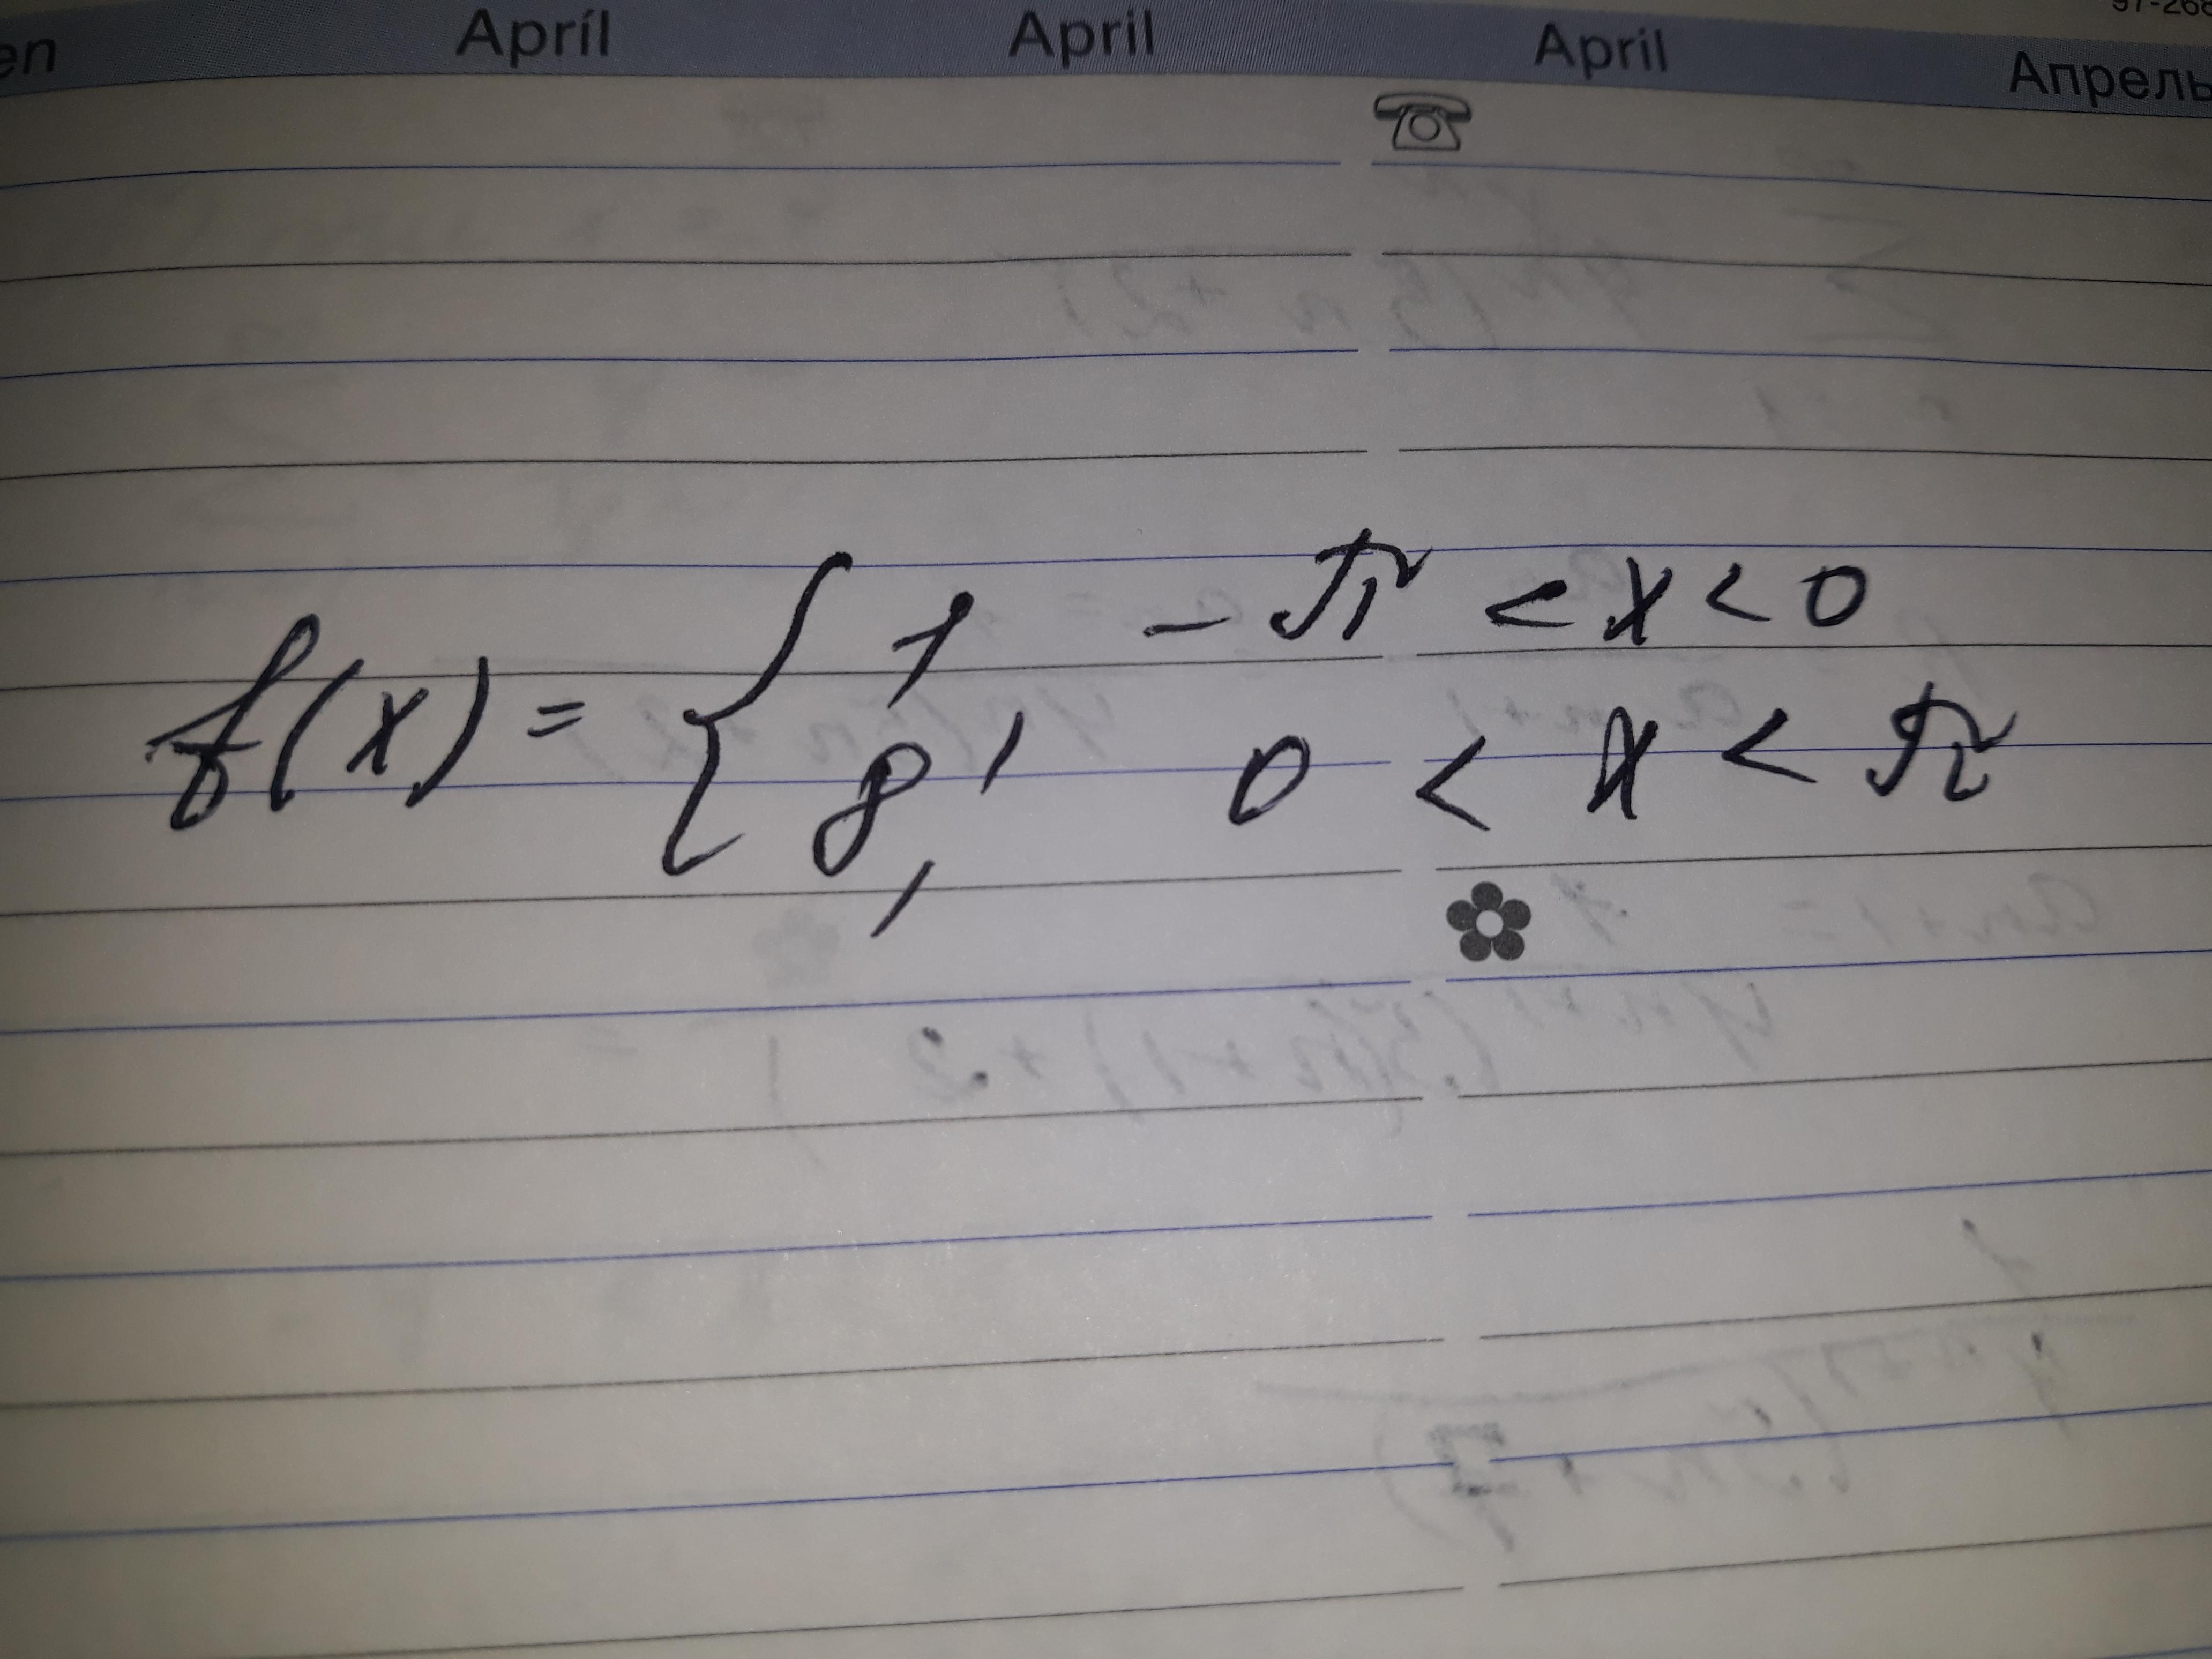 en Apríl April Apríl Апрель
f(x) = { 1, -π < x < 0
8, 0 < x < π